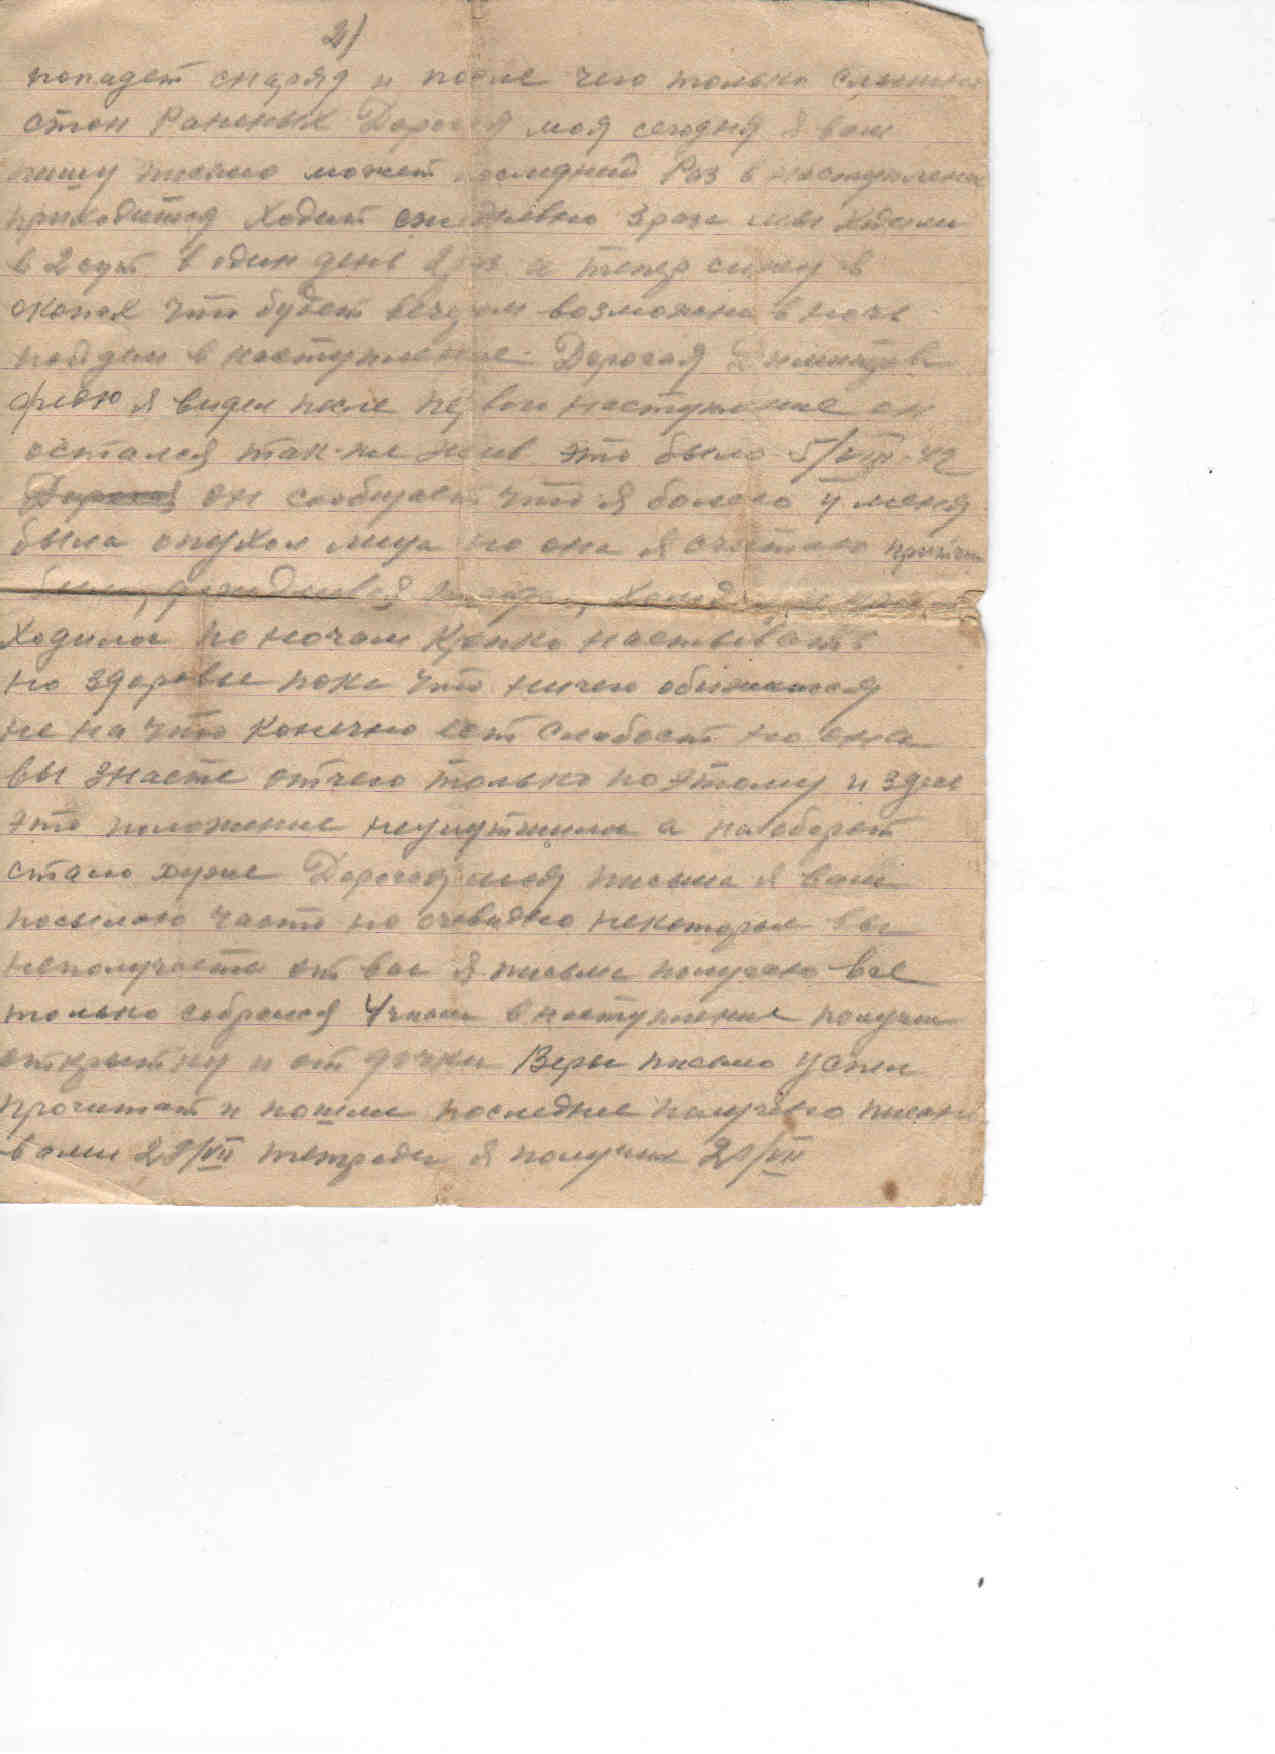 2)
попадет снаряд и после чего только слышно
стон Раненых Дорогая моя сегодня я вам
пишу письмо может последний Раз в наступление
приходится ходит ежедневно
в 2 сут в один день 2 раз а тепер сижу в
окопах что будет вечером возможна в ночь
пойдем в наступление. Дорогая
Федю я видел после первою наступление он
остался так-же жив это было 5/VIII-42
он сообщает что я болею у меня
была опухол лица но она я считаю
погода,
Ходила по ночам Крепко
но здоровье пока что ничего обижатся
не на что конечно ест слабост но она
вы знаете отчего только поэтому и здес
это положение а наоборот
стало хуже Дорогая моя письма я вам
посылаю часто но очевидно некоторые вы
неполучаете от вас я письма получаю все
только собрался в наступление получил
открытку и от дочки Веры писмо успел
прочитат и пошли последнее получено писмо
вами 29/VII тетради я получил 20/VII